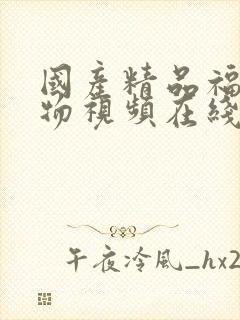 國產精品福
物視頻在綫
午夜冷風_hx2